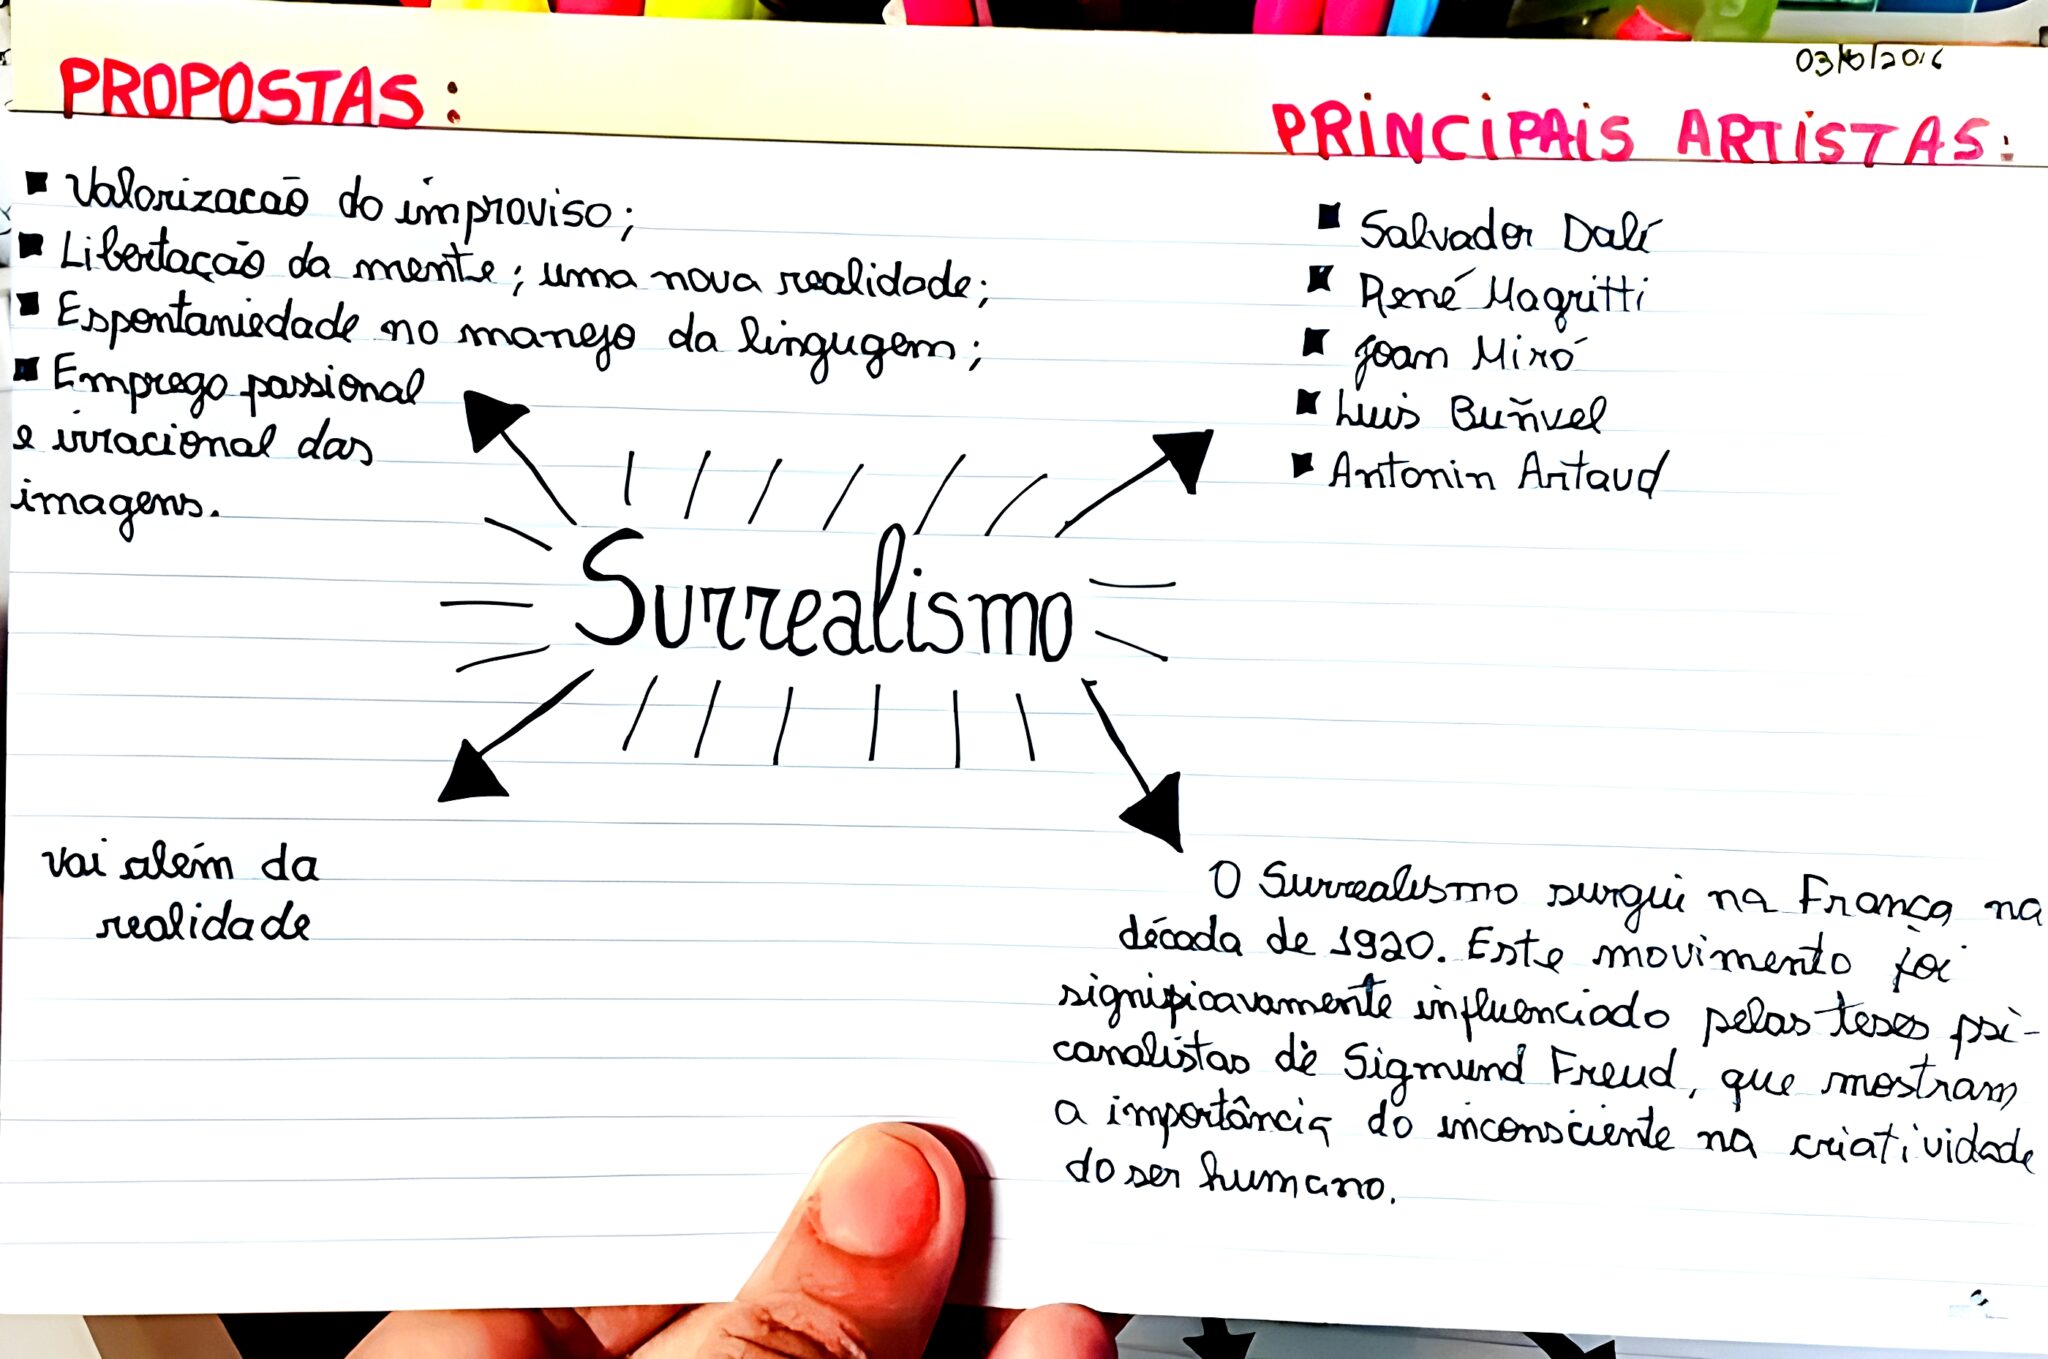 PROPOSTAS:
▪ Valorizacaõ do improviso;
▪ Libertação da mente; uma nova realidade;
▪ Espontaniedade no manejo da lingugem;
▪ Emprego passional
e irracional das
imagens.
PRINCIPAIS ARTISTAS:
▪ Salvador Dalí
▪ René Magritti
▪ Joan Miró
▪ Luis Buñuel
▪ Antonin Artaud
Surrealismo
vai além da
realidade
O Surrealismo surgui na França na
década de 1920. Este movimento foi
significavamente influenciado pelas teses psi-
canalistas de Sigmund Freud, que mostram
a importância do inconsciente na criatividade
do ser humano.